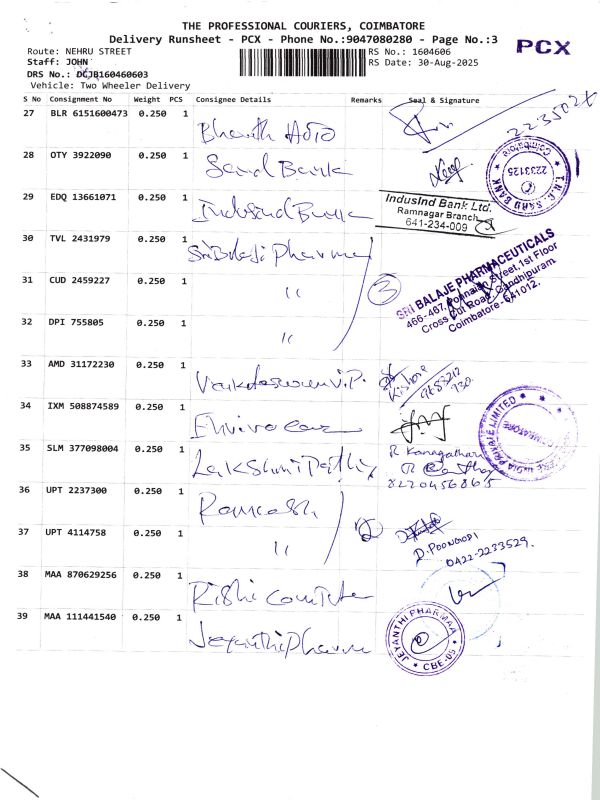 THE PROFESSIONAL COURIERS, COIMBATORE
Delivery Runsheet - PCX - Phone No.:9047080280 - Page No.:3
PCX
Route: NEHRU STREET
RS No.: 1604606
Staff: JOHN
RS Date: 30-Aug-2025
DRS No.: DCJB160460603
Vehicle: Two Wheeler Delivery
S No Consignment No Weight PCS Consignee Details Remarks Seal & Signature
27 BLR 6151600473 0.250 1 Bharath Auto
28 OTY 3922090 0.250 1 Sarvd Bank
2233125
Coimbatore
29 EDQ 13661071 0.250 1 Indusind Bank
IndusInd Bank Ltd.
Ramnagar Branch
641-234-009
30 TVL 2431979 0.250 1 Sri Balaji Pharma
31 CUD 2459227 0.250 1 "
3
SRI BALAJE PHARMACEUTICALS
466-467, Ponnaian Street, 1st Floor
Cross Cut Road, Gandhipuram
Coimbatore-641012.
32 DPI 755805 0.250 1 "
33 AMD 31172230 0.250 1 Venkateswara V.P.
Kishore
34 IXM 508874589 0.250 1 Enviro care
35 SLM 377098004 0.250 1 Lakshmi Pathy
R Kanagathara
8220456865
36 UPT 2237300 0.250 1 Ramcosh
37 UPT 4114758 0.250 1 "
2
D. POONGODI
0422-2233529.
38 MAA 870629256 0.250 1 Rishi Computer
39 MAA 111441540 0.250 1 Jeyanthi Pharma
JEYANTHI PHARMAA
CBE-05